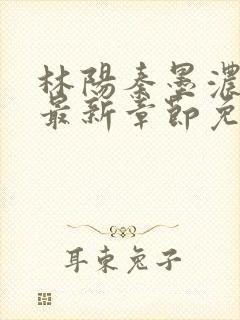 林陽秦墨濃
最新章節免
耳東兔子